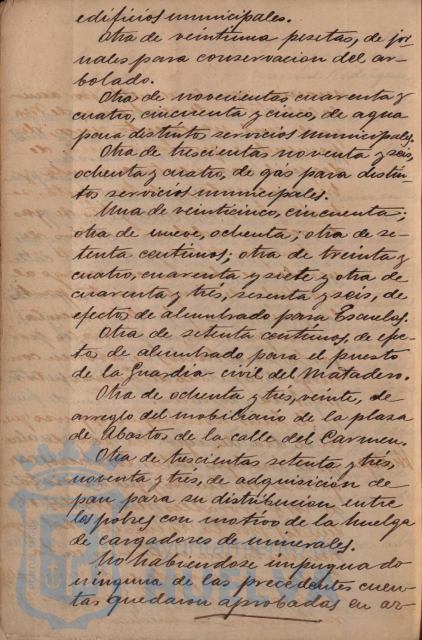 edificios municipales.
Otra de veintiuna pesetas, de jor-
nales para conservacion del ar-
bolado.
Otra de novecientas cuarenta y
cuatro, cincuenta y cinco, de agua
para distintos servicios municipales.
Otra de trescientas noventa y seis,
ochenta y cuatro, de gas para distin-
tos servicios municipales.
Una de veinticinco, cincuenta;
otra de nueve, ochenta; otra de se-
tenta centimos; otra de treinta y
cuatro, cuarenta y siete y otra de
cuarenta y tres, sesenta y seis, de
efectos de alumbrado para Escuelas.
Otra de setenta centimos, de efec-
tos de alumbrado para el puesto
de la Guardia civil del Matadero.
Otra de ochenta y tres, veinte, de
arreglo del mobiliario de la plaza
de Abastos de la calle del Carmen.
Otra de trescientas setenta y tres,
noventa y tres, de adquisicion de
pan para su distribucion entre
los pobres con motivo de la huelga
de cargadores de minerales.
No habiendose impugnado
ninguna de las precedentes cuen-
tas quedaron aprobadas en ar-